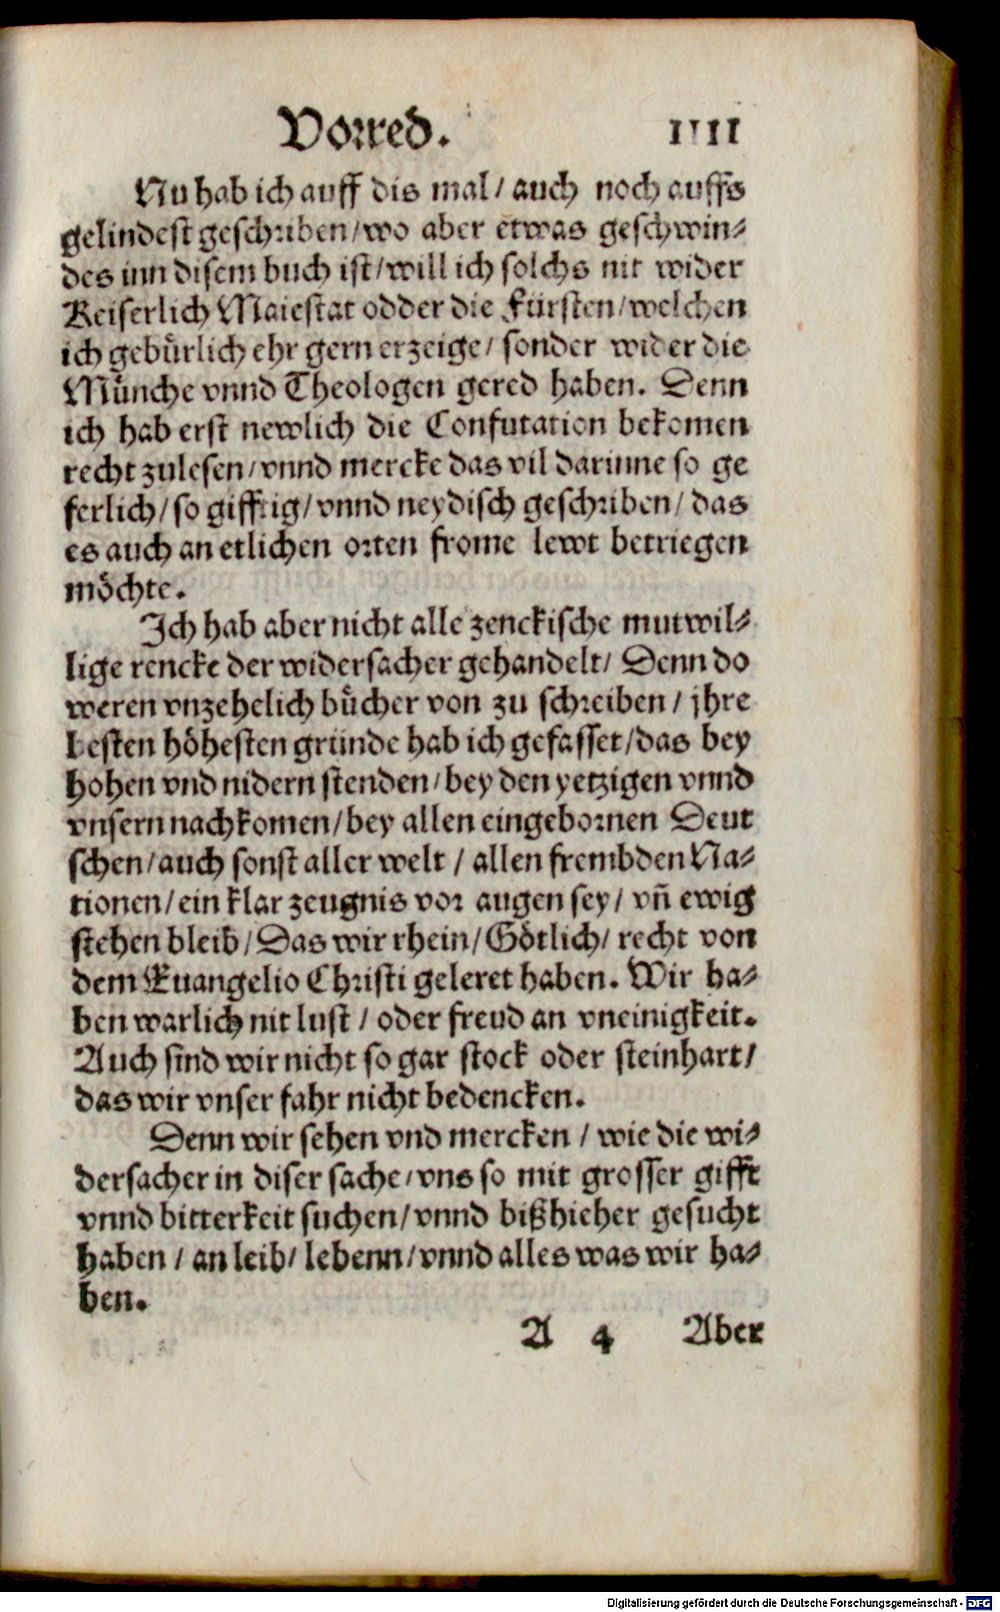 Vorred. IIII
Nu hab ich auff dis mal / auch noch auffs
gelindest geschriben / wo aber etwas geschwin⸗
des inn disem buch ist / will ich solchs nit wider
Keiserlich Maiestat odder die Fürsten / welchen
ich gebuͤrlich ehr gern erzeige / sonder wider die
Muͤnche vnnd Theologen gered haben. Denn
ich hab erst newlich die Confutation bekomen
recht zulesen / vnnd mercke das vil darinne so ge
ferlich / so gifftig / vnnd neydisch geschriben / das
es auch an etlichen orten frome lewt betriegen
moͤchte.
Ich hab aber nicht alle zenckische mutwil⸗
lige rencke der widersacher gehandelt / Denn do
weren vnzehelich buͤcher von zu schreiben / jhre
besten hoͤhesten gründe hab ich gefasset / das bey
hohen vnd nidern stenden / bey den yetzigen vnnd
vnsern nachkomen / bey allen eingebornen Deut
schen / auch sonst aller welt / allen frembden Na⸗
tionen / ein klar zeugnis vor augen sey / vn̄ ewig
stehen bleib / Das wir rhein / Goͤtlich / recht von
dem Euangelio Christi geleret haben. Wir ha⸗
ben warlich nit lust / oder freud an vneinigkeit.
Auch sind wir nicht so gar stock oder steinhart /
das wir vnser fahr nicht bedencken.
Denn wir sehen vnd mercken / wie die wi⸗
dersacher in diser sache / vns so mit grosser gifft
vnnd bitterkeit suchen / vnnd bißhieher gesucht
haben / an leib / lebenn / vnnd alles was wir ha⸗
ben.
A 4 Aber
Digitalisierung gefördert durch die Deutsche Forschungsgemeinschaft - DFG